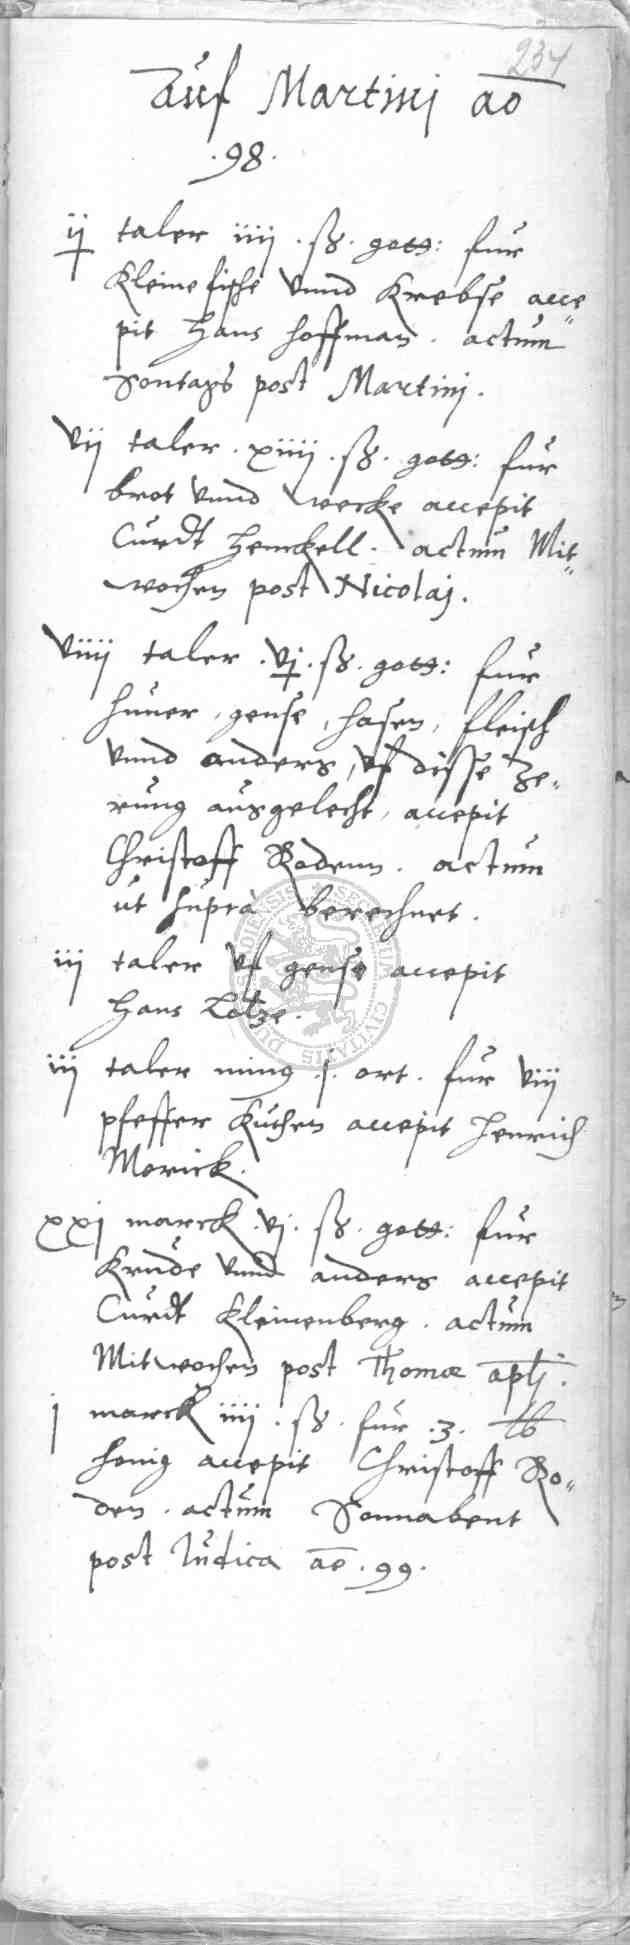 234
Auf Martinj ao
.98.
ij taler iiij . ß . gott: fur
kleine fische vnnd krebse acce
pit Hans Hoffman . actum
Sontags post Martinj .
vij taler . xiiij . ß . gott: fur
brot vnnd wecke accepit
Curdt Henckell . actum Mit„
wochen post Nicolaj .
viiij taler . vj . ß . gott: fur
huner , gense , hasen , fleisch
vnnd anders , vf disse Ze„
rung ausgelecht , accepit
Christoff Rodenn . actum
ut supra berechnet .
iij taler vf gense accepit
Hans Lotze .
iij taler ming . j . ort . fur viij
pfeffer kuchen accepit Henrich
Morick .
xxj marck . vj . ß . gott: fur
krude vnnd anders accepit
Curdt Kleinenberg . actum
Mitwochen post Thomæ aplj .
j marck iiij . ß . fur . 3 . lb
honig accepit Christoff Ro„
den . actum Sonnabent
post Iudica ao . 99 .
SECRETA CIVITATIS DUDERSTADIENSIS